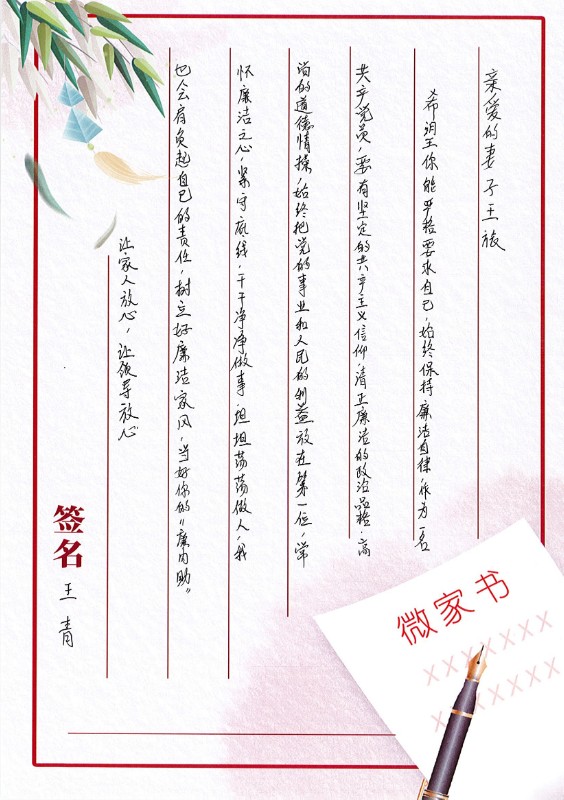 亲爱的妻子王旅
希望你能严格要求自己，始终保持廉洁自律，作为一名
共产党员，要有坚定的共产主义信仰，清正廉洁的政治品格，高
尚的道德情操，始终把党的事业和人民的利益放在第一位，常
怀廉洁之心，紧守底线，干干净净做事，坦坦荡荡做人，我
也会肩负起自己的责任，树立好廉洁家风，当好你的“廉内助”
让家人放心，让领导放心
签名
王青
微家书
XXXXXXX
XXXXXXX